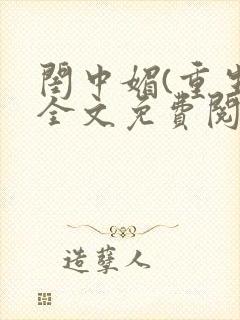 閨中媚(重生
全文免費閱
造孽人